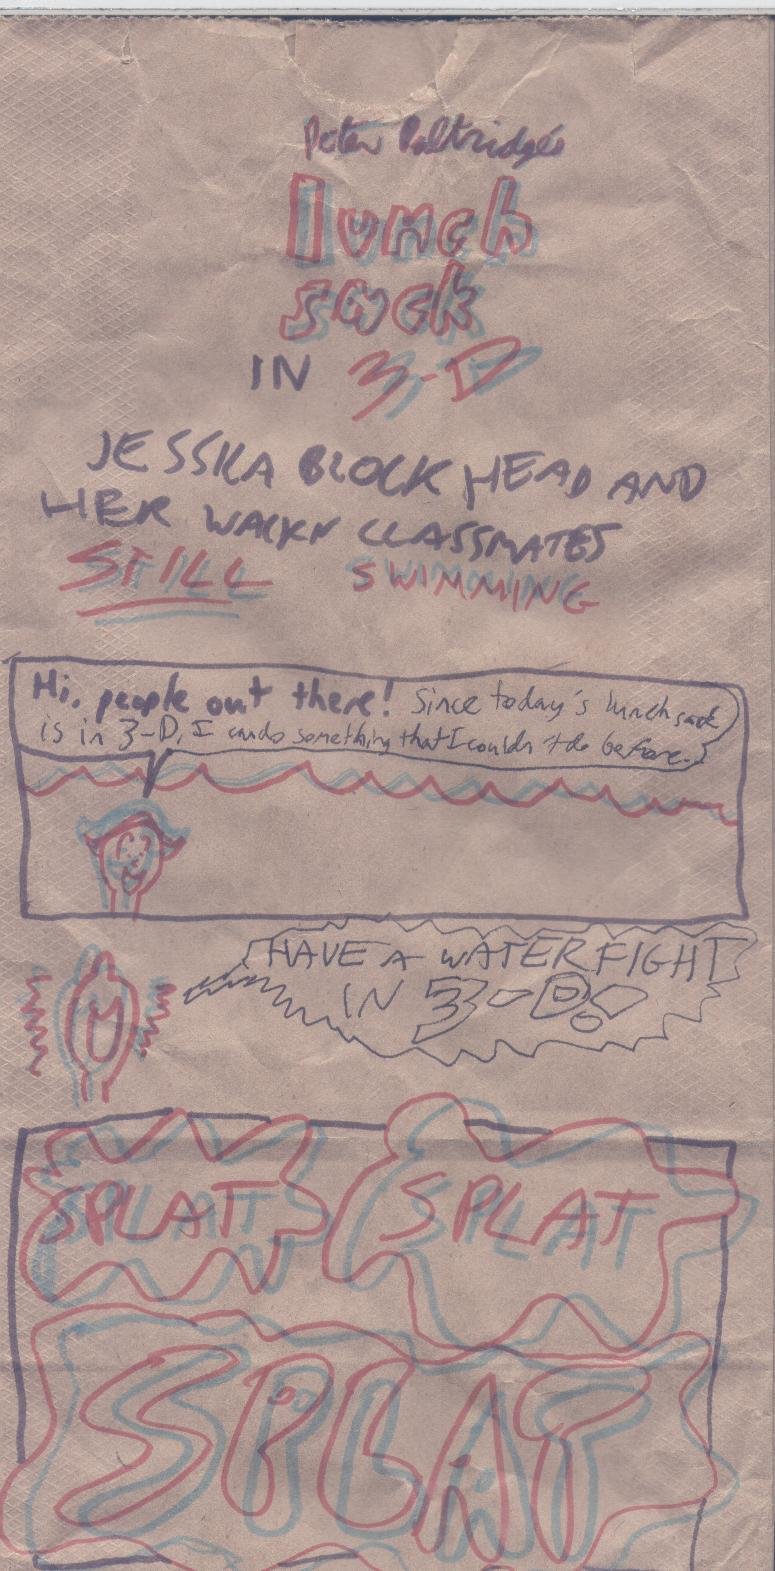 Peter Paltridge's
lunch
sack
IN 3-D
JESSICA BLOCKHEAD AND
HER WACKY CLASSMATES
STILL SWIMMING
Hi, people out there! Since today's lunch sack
is in 3-D, I can do something that I couldn't do before.
HAVE A WATER FIGHT
IN 3-D!
SPLAT SPLAT
SPLAT